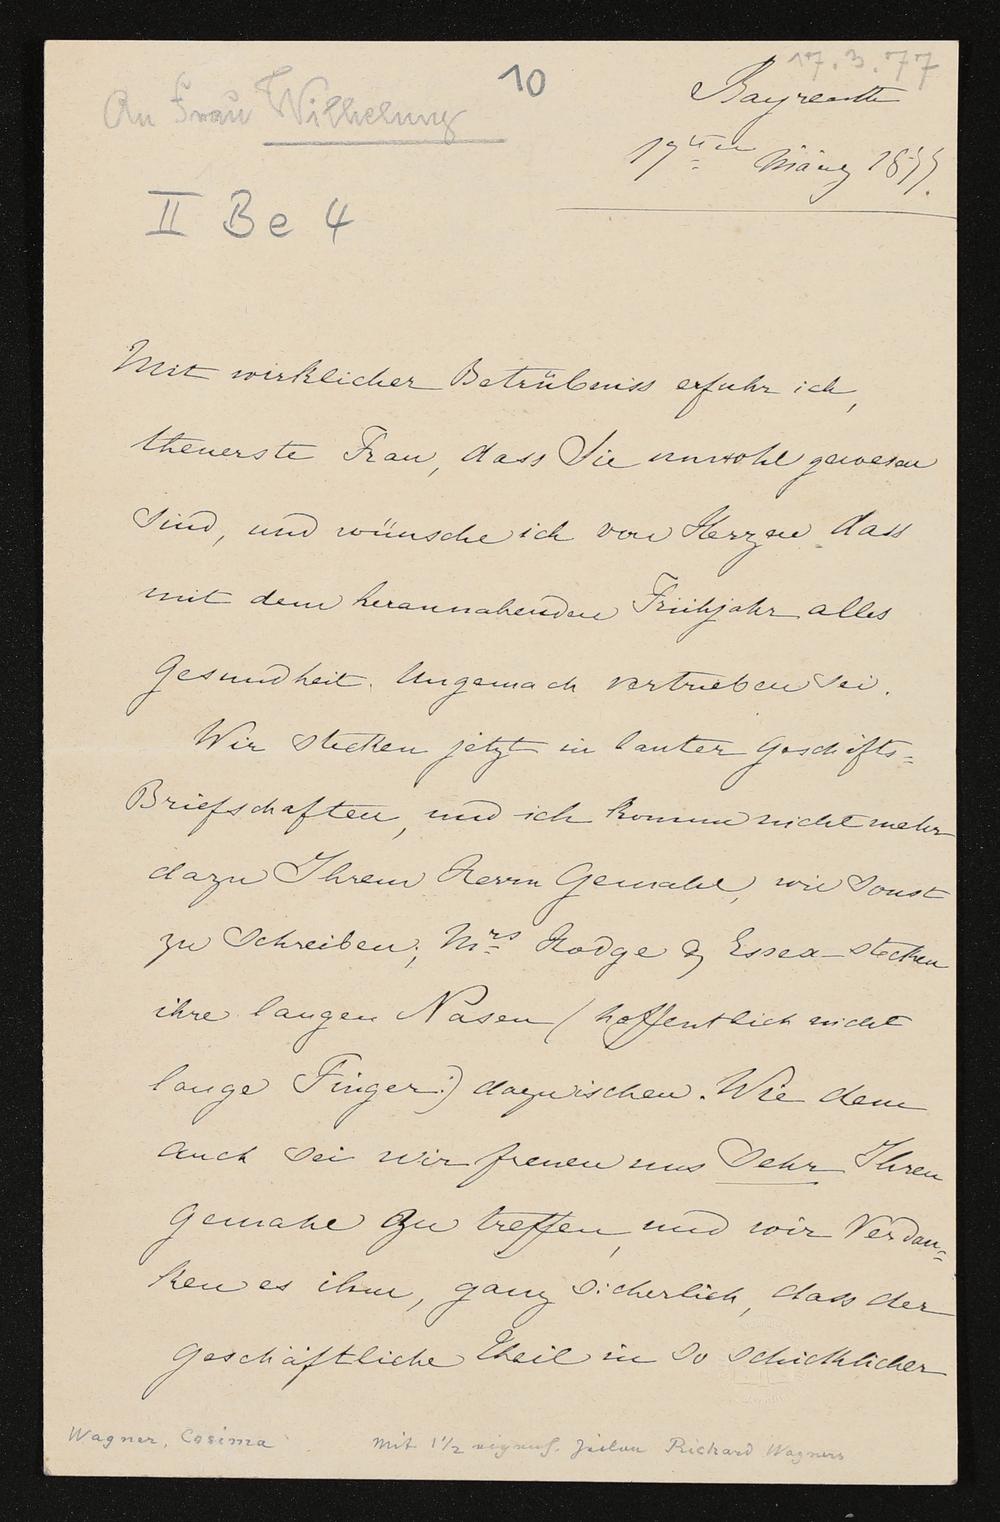 17.3.77
An Frau Wilhelmj
10
Bayreuth
17ten März 1877.
II Be 4
Mit wirklicher Betrübniss erfuhr ich,
theuerste Frau, dass Sie unwohl gewesen
sind, und wünsche ich von Herzen dass
mit dem herannahenden Frühjahr alles
Gesundheit. Ungemach vertrieben sei.
Wir stecken jetzt in lauter Geschäfts=
Briefschaften, und ich komme nicht mehr
dazu Ihrem Herrn Gemahl, wie sonst
zu schreiben; Mrs Hodge & Essex stecken
ihre langen Nasen (hoffentlich nicht
lange Finger!) dazwischen. Wie dem
auch sei wir freuen uns sehr Ihren
Gemahl zu treffen, und wir verdan=
ken es ihm, ganz sicherlich, dass der
geschäftliche Theil in so schicklicher
Wagner, Cosima
Mit 1½ eigenh. Zeilen Richard Wagners